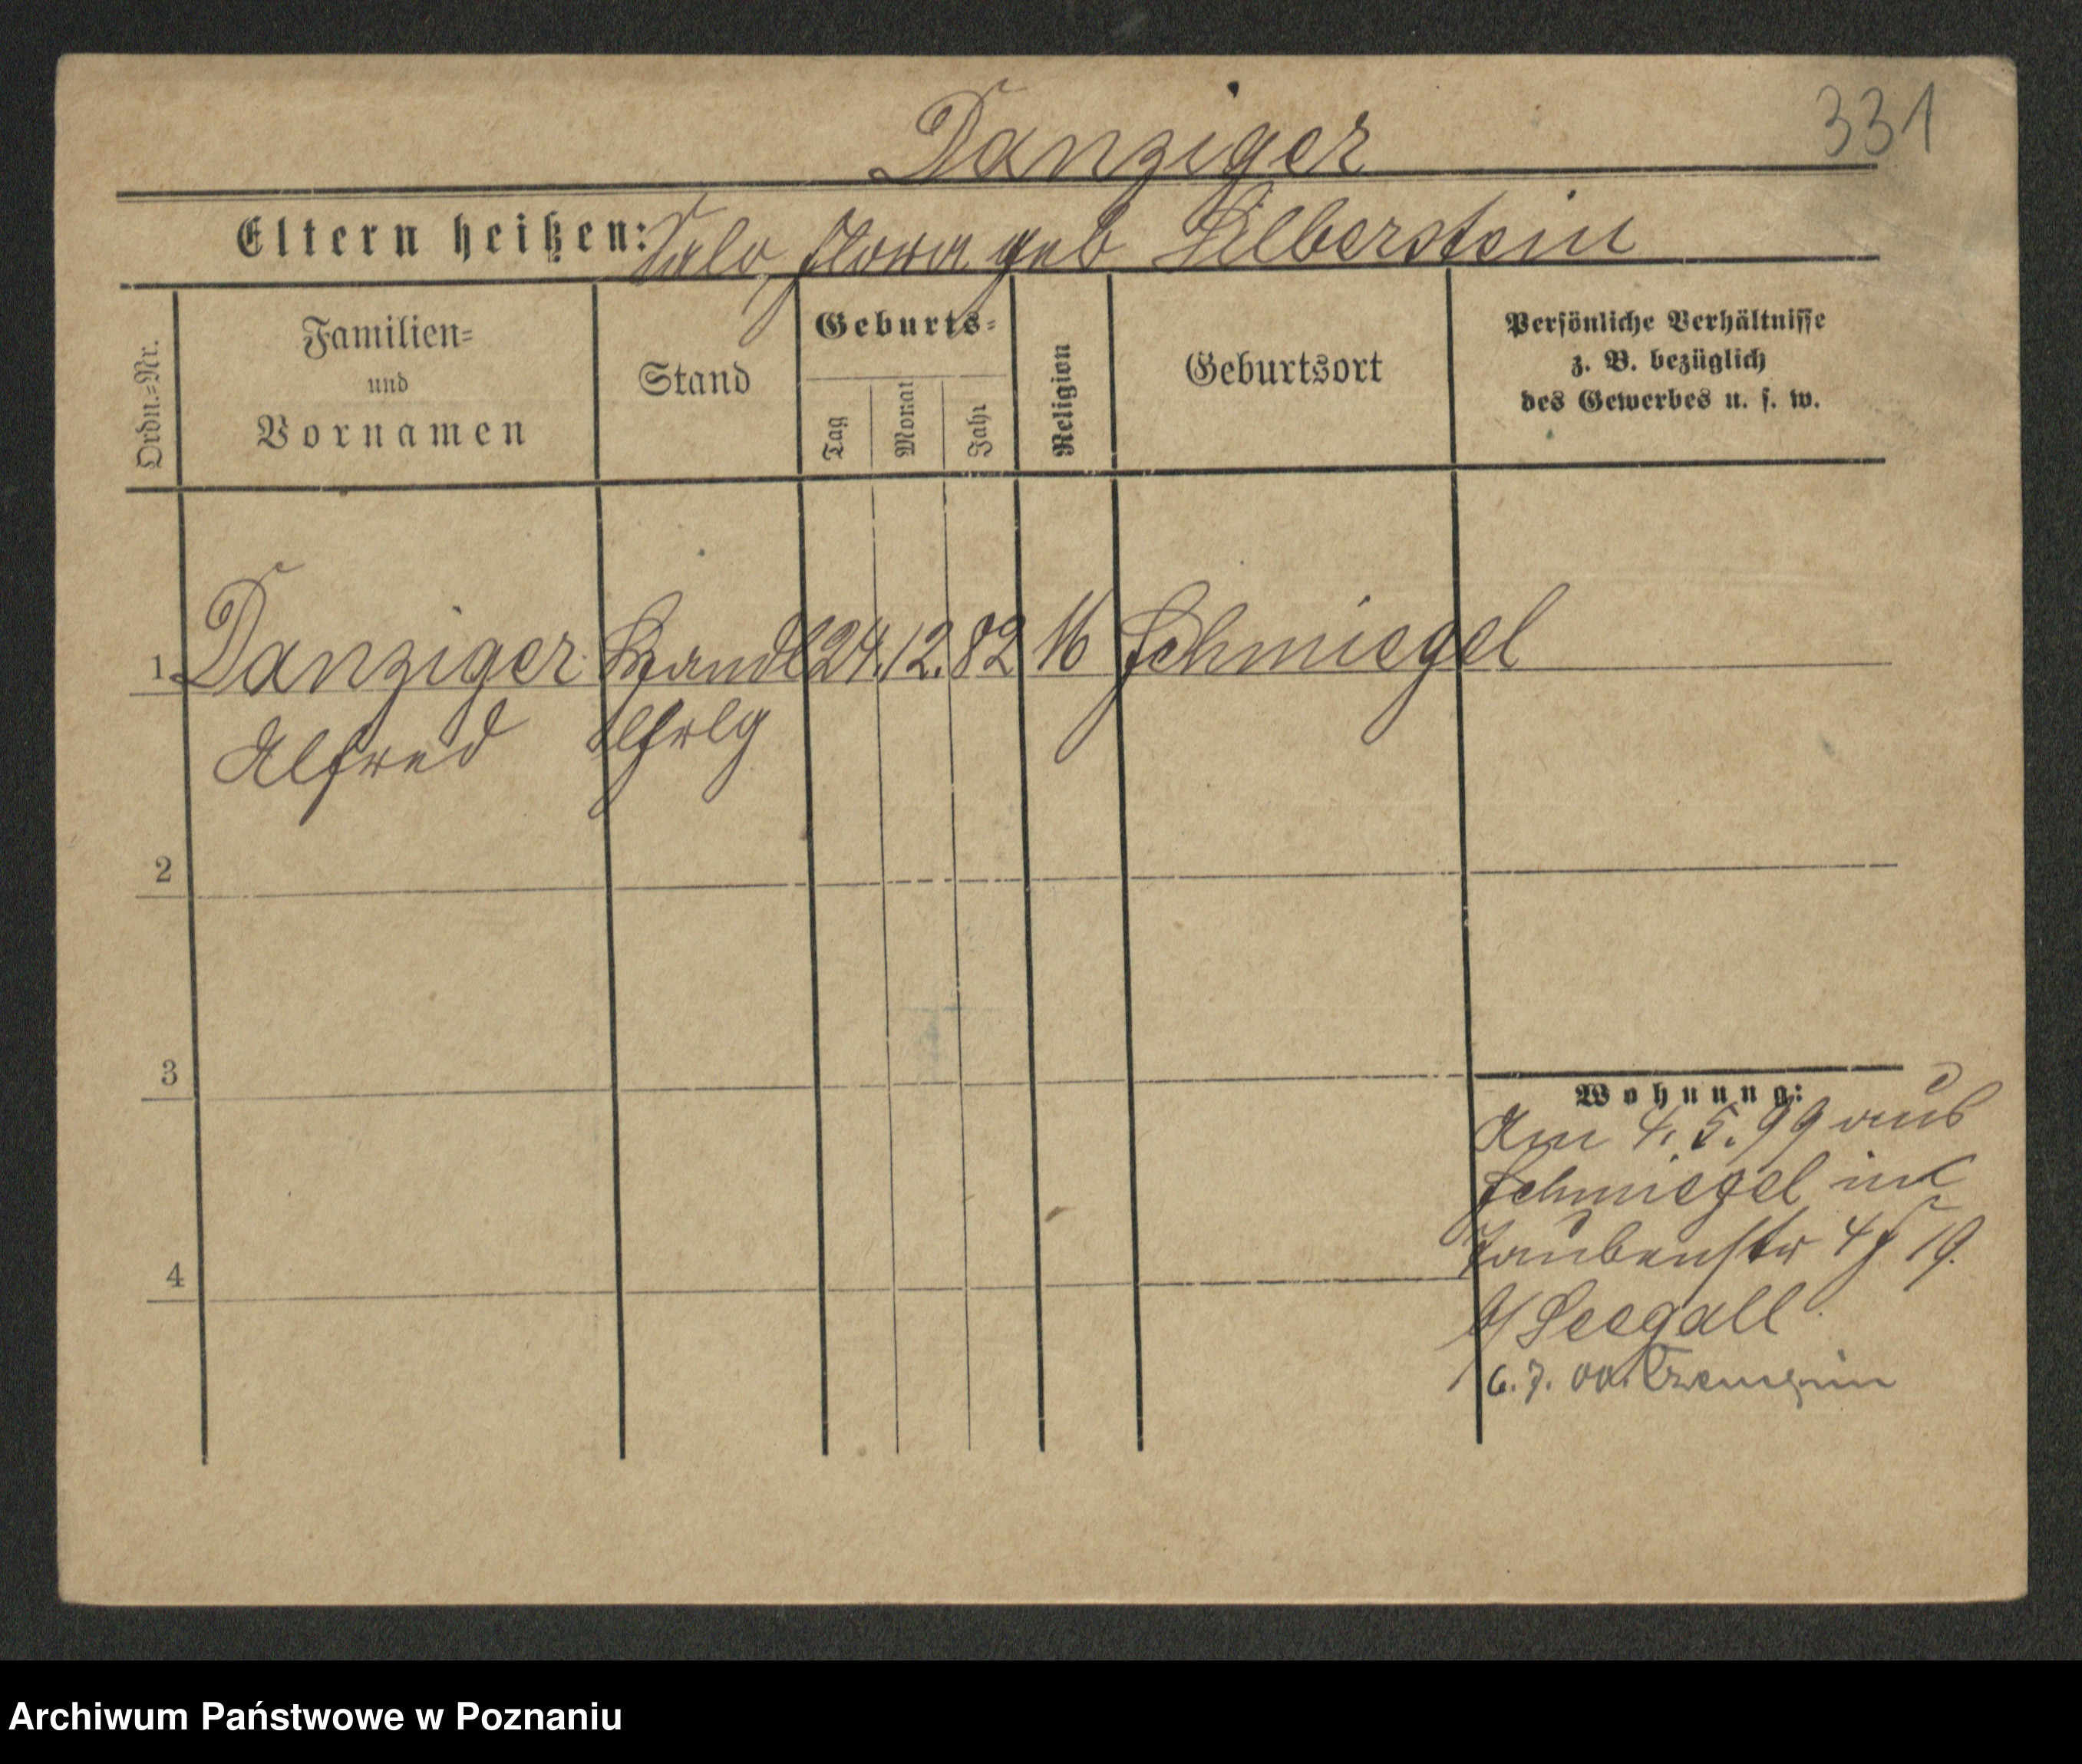 331
Danziger
Eltern heißen: Salo, Flora geb Silberstein
Ordn.=Nr.
Familien=
und
Vornamen
Stand
Geburts=
Tag
Monat
Jahr
Religion
Geburtsort
Persönliche Verhältnisse
z. B. bezüglich
des Gewerbes u. s. w.
1 Danziger Handl 24. 12. 82 Schmiegel
Alfred
2
3
4
Wohnung:
Am 4. 5. 99 aus
Schmiegel in
Taubenstr 4
b/ Seegall
6. 7. 00.
Archiwum Państwowe w Poznaniu